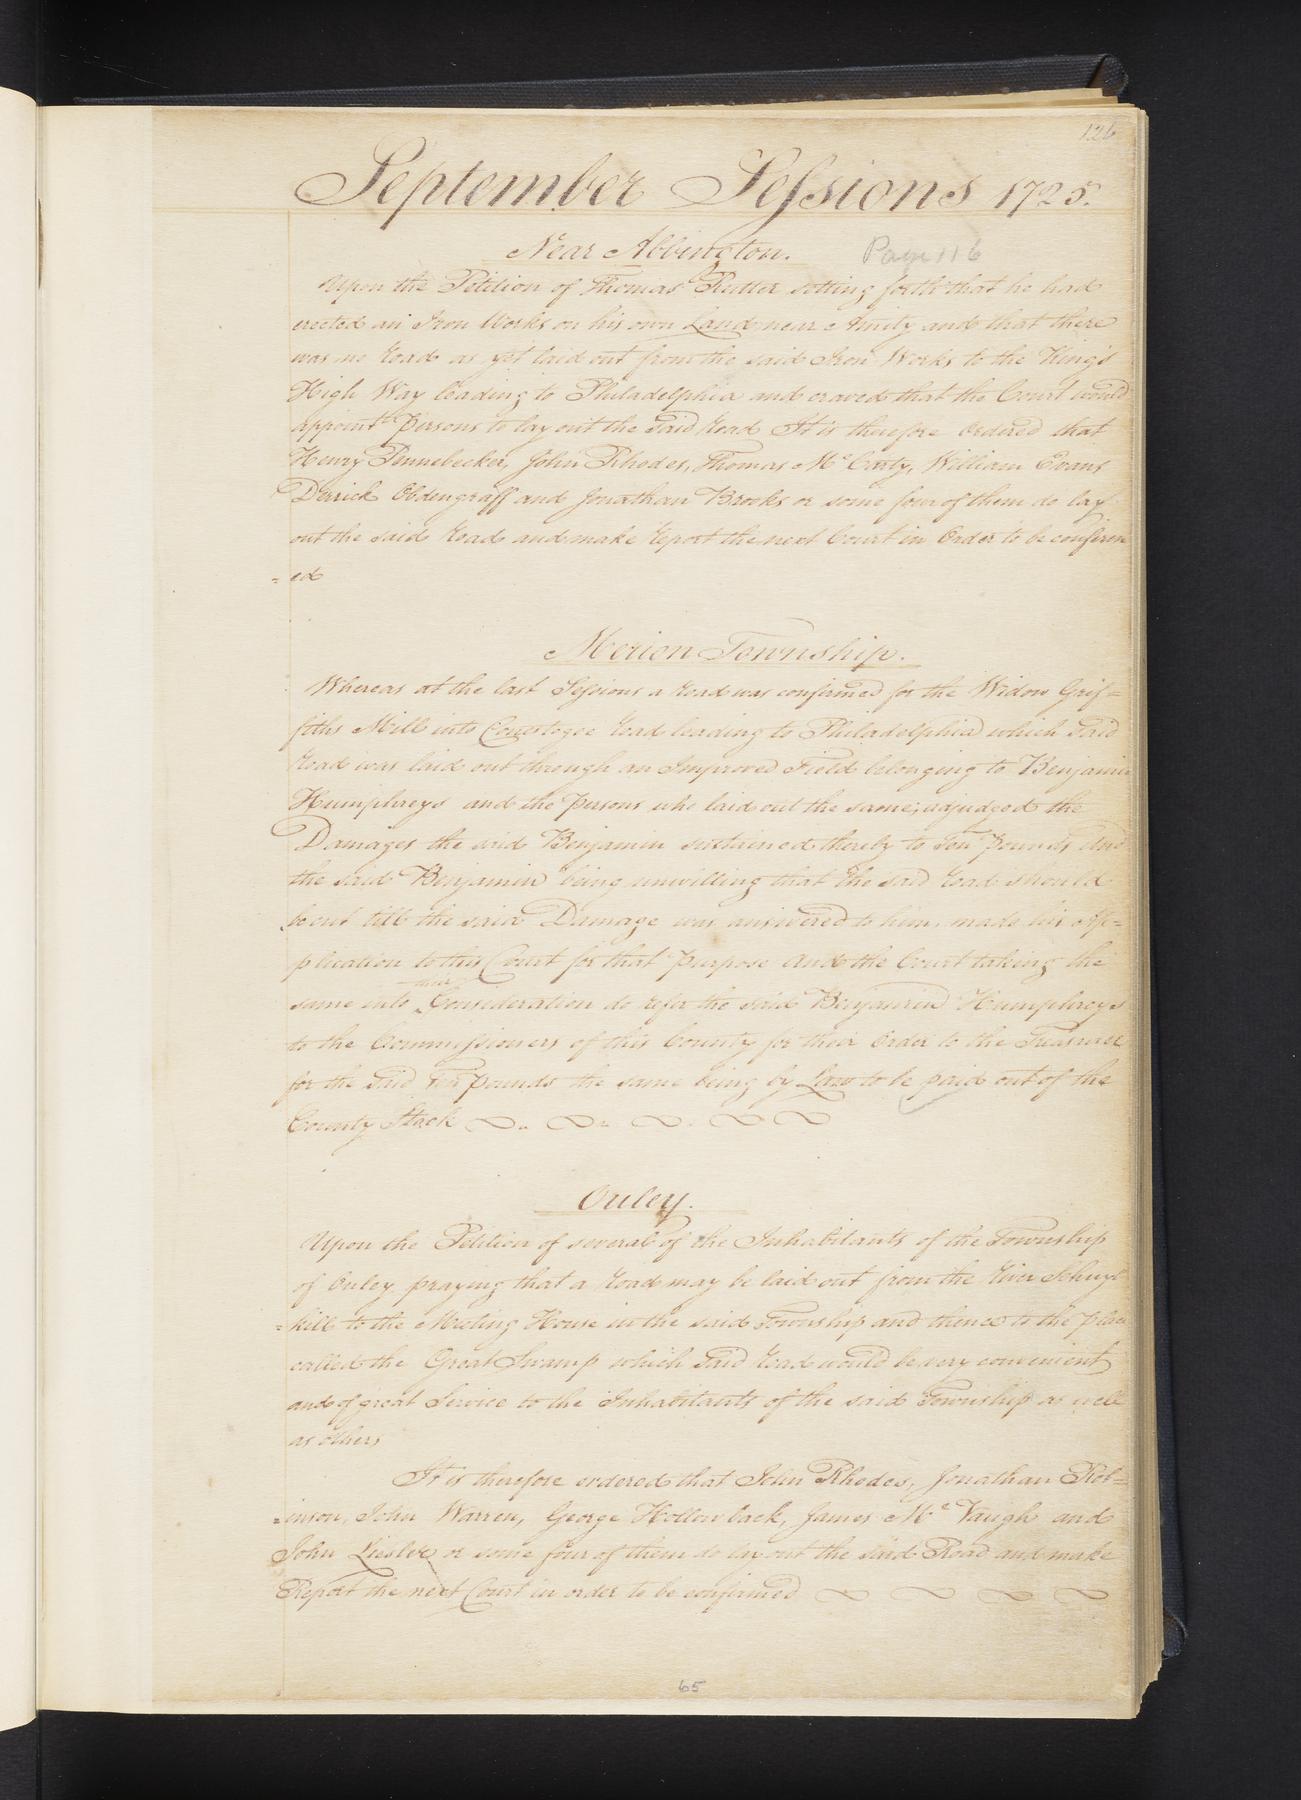 126
September Sessions 1725.
Near Abbington. Page 116
Upon the Petition of Thomas Rutter setting forth that he had
erected an Iron Works on his own Land near Amity and that there
was no Road as yet laid out from the said Iron Works to the King's
High Way leading to Philadelphia and craved that the Court would
appoint Persons to lay out the said Road It is therefore Ordered that
Henry Pennebecker, John Rhodes, Thomas Mc Carty, William Evans
Derrick Obdengraff and Jonathan Brooks or some four of them do lay
out the said Road and make report the next Court in Order to be confirm
= ed
Merion Township.
Whereas at the last Sessions a Road was confirmed for the Widow Grif=
fiths Mill into Conestogoe Road leading to Philadelphia which said
Road was laid out through an Improved Field belonging to Benjamin
Humphreys and the Persons who laid out the same, adjudged the
Damages the said Benjamin sustained thereby to Ten Pounds and
the said Benjamin being unwilling that the said Road should
be cut till the said Damage was answered to him, made his Ap=
plication to this Court for that Purpose And the Court taking the
same into their Consideration do refer the said Benjamin Humphreys
to the Commissioners of this County for their Order to the Treasurer
for the said Ten pounds the same being by Law to be paid out of the
County Stock
Ouley.
Upon the Petition of several of the Inhabitants of the Township
of Ouley praying that a Road may be laid out from the River Schuyl
= kill to the Meeting House in the said Township and thence to the place
called the Great Swamp which said Road would be very convenient
and of great Service to the Inhabitants of the said Township as well
as others
It is therefore ordered that John Rhodes, Jonathan Rob=
= inson, John Warren, George Hollowback, James Mc Vaugh and
John or some four of them do lay out the said Road and make
Report the next Court in order to be confirmed
65